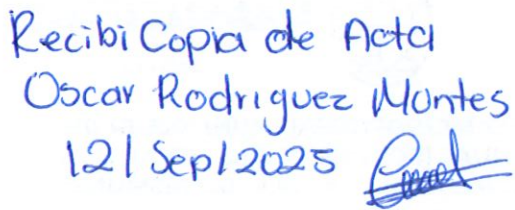 Recibi Copia de Acta
Oscar Rodriguez Montes
12/Sep/2025